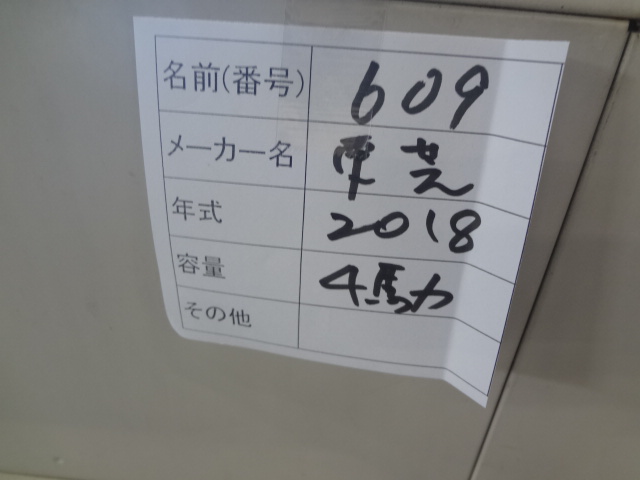 名前(番号) 609
メーカー名 東芝
年式 2018
容量 4馬力
その他